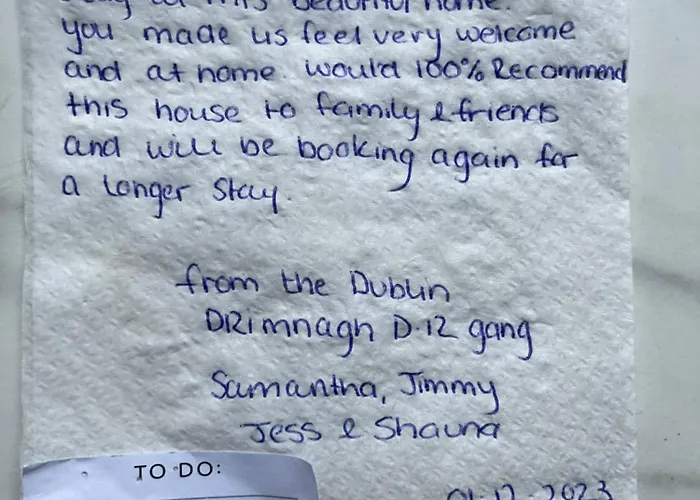 this beautiful home.
you made us feel very welcome
and at home. would 100% Recommend
this house to family & friends
and will be booking again for
a longer stay.
from the Dublin
DRimnagh D.12 gang
Samantha, Jimmy
Jess & Shauna
TO DO:
01.12.2023